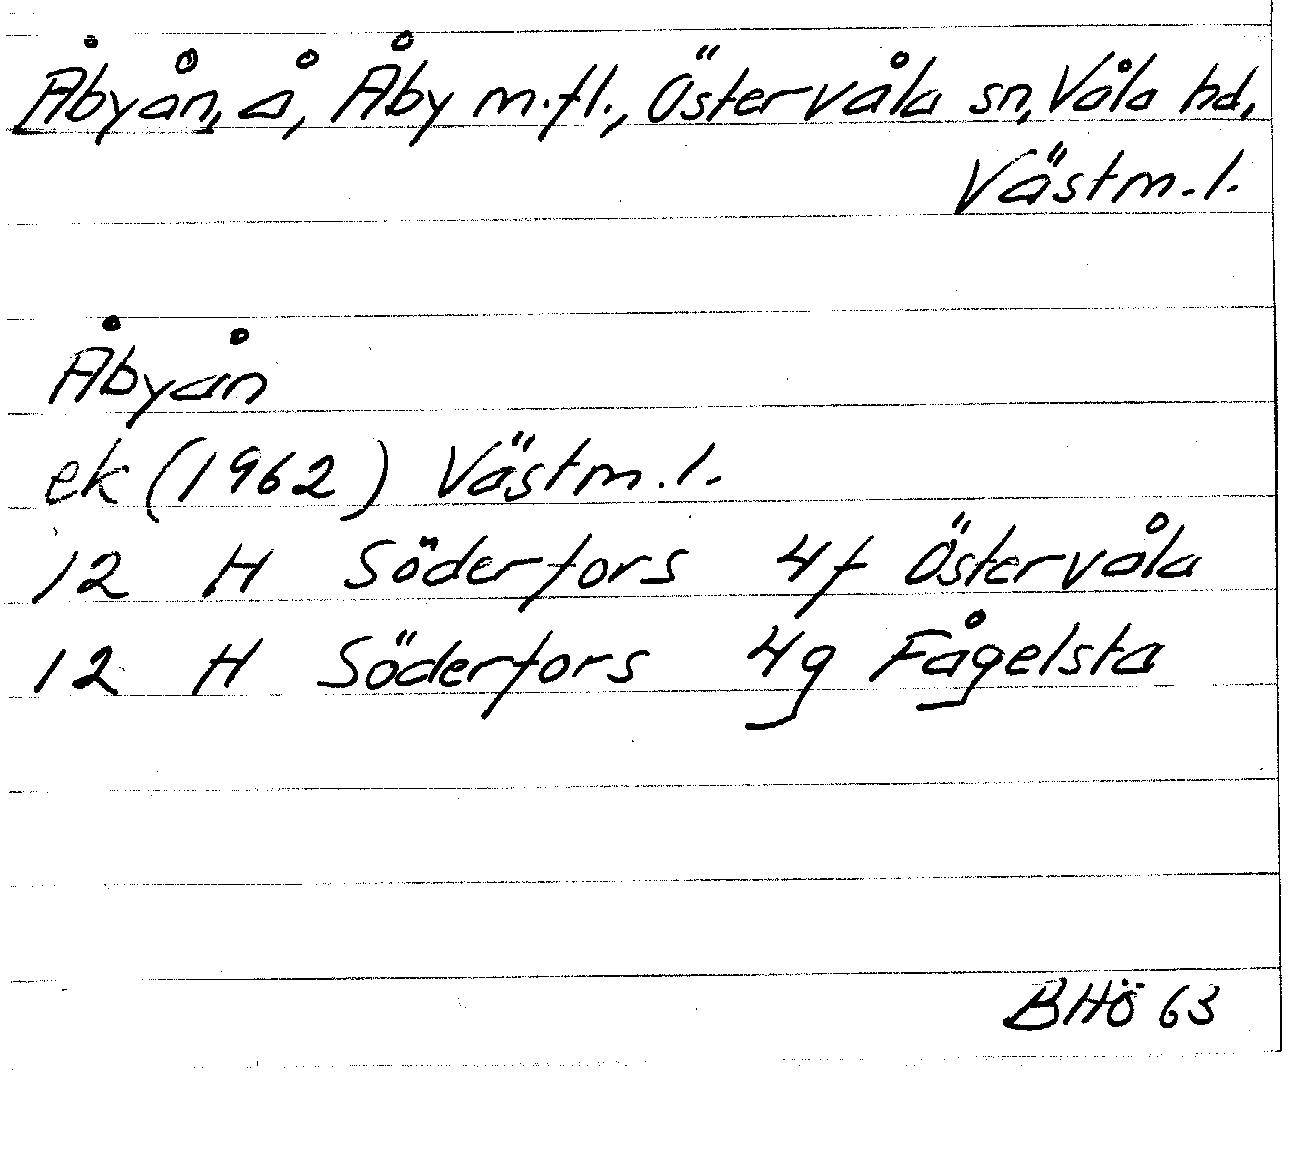 Åbyån, å, Åby m.fl., Östervåla sn, Våla hd,
Västm.l.
Åbyån
ek (1962) Västm.l.
12 H Söderfors 4f Östervåla
12 H Söderfors 4g Fågelsta
BHÖ 63